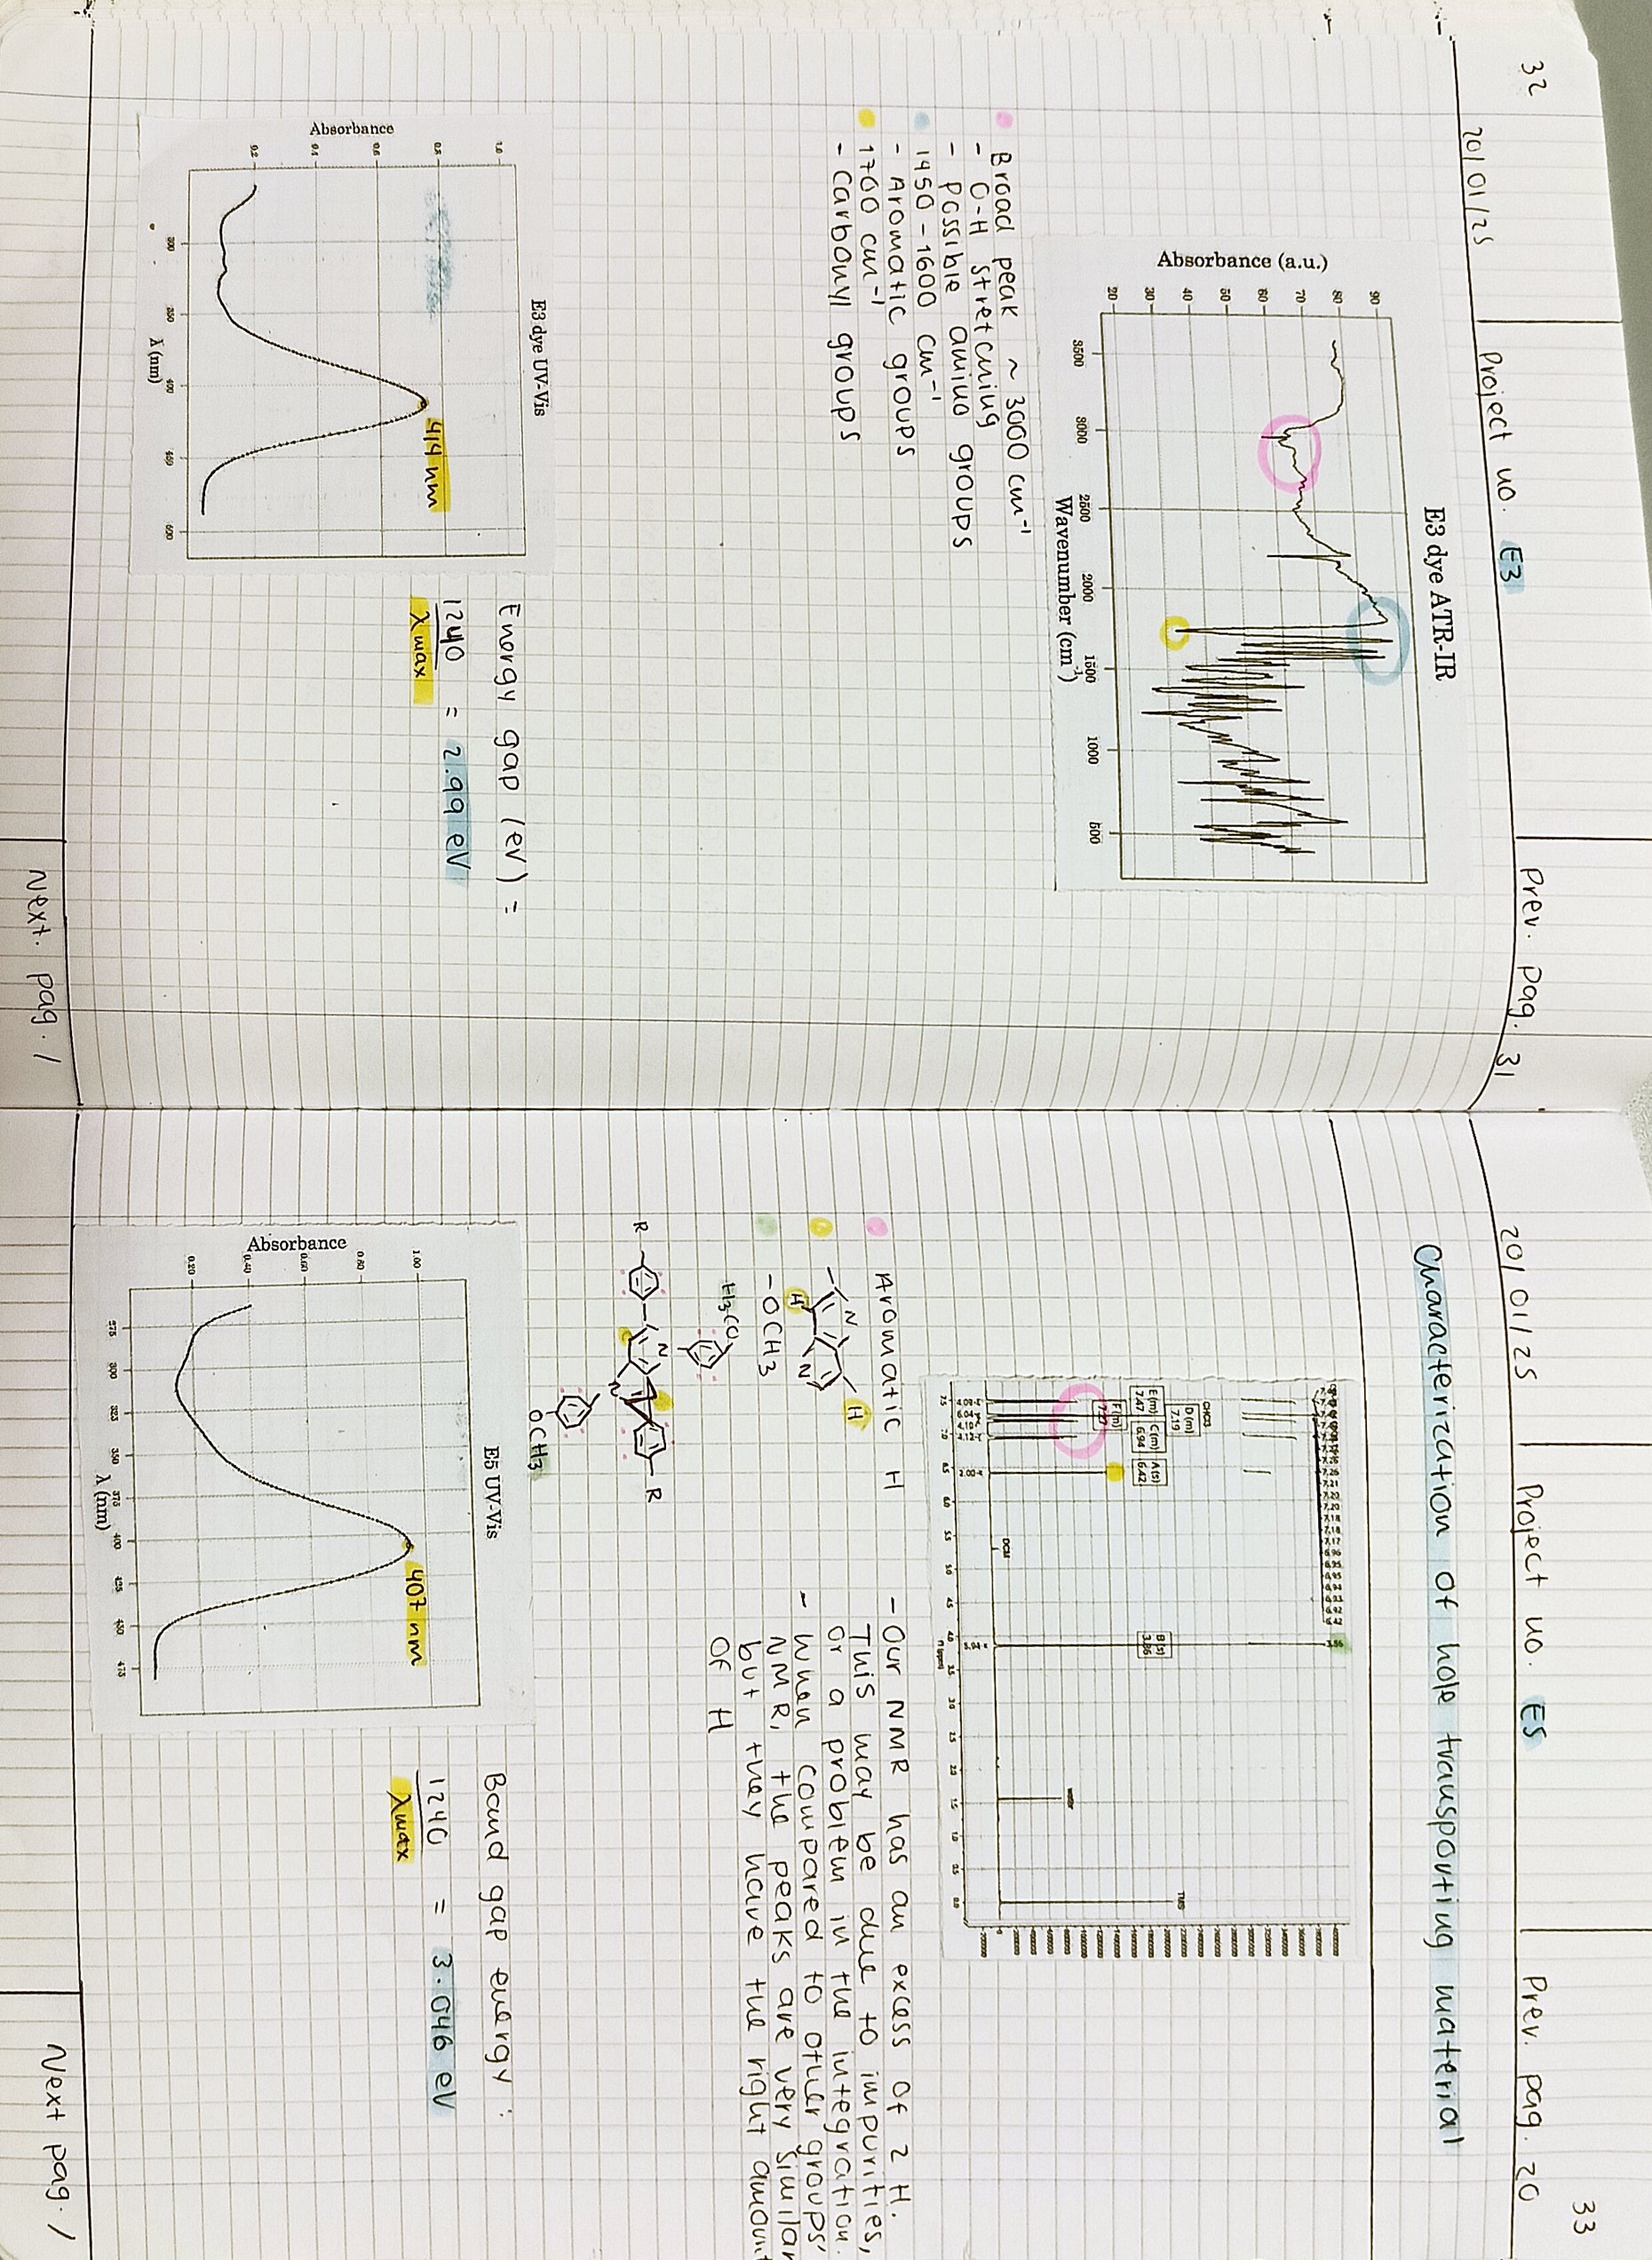 32
20/01/25
Project no. E3
Prev. pag. 31
E3 dye ATR-IR
Absorbance (a.u.)
90
80
70
60
50
40
30
20
3500
3000
2500
2000
1500
1000
500
Wavenumber (cm-1)
Broad peak ~ 3000 cm⁻¹
- O-H stretching
- possible amino groups
1450 - 1600 cm⁻¹
- Aromatic groups
1700 cm⁻¹
- Carbonyl groups
E3 dye UV-Vis
Absorbance
1.0
0.8
0.6
0.4
0.2
300
350
400
450
500
λ (nm)
414 nm
Energy gap (eV) =
1240
λmax
= 2.99 eV
Next. pag. /
33
20/01/25
Project no. E5
Prev. pag. 20
Characterization of hole transporting material
CHCl3
D (m)
7.19
E (m)
7.47
C (m)
6.94
A (s)
6.42
F (m)
B (s)
3.86
DCM
water
TMS
Aromatic H
N
H
N
H
- OCH3
H3CO
R
N
N
R
OCH3
- Our NMR has an excess of 2 H.
This may be due to impurities,
or a problem in the integration.
- When compared to other groups'
NMR, the peaks are very similar
but they have the right amount
of H
E5 UV-Vis
Absorbance
1.00
0.80
0.60
0.40
0.20
275
300
325
350
375
400
425
450
475
λ (nm)
407 nm
Band gap energy :
1240
λmax
= 3.046 eV
Next pag. /